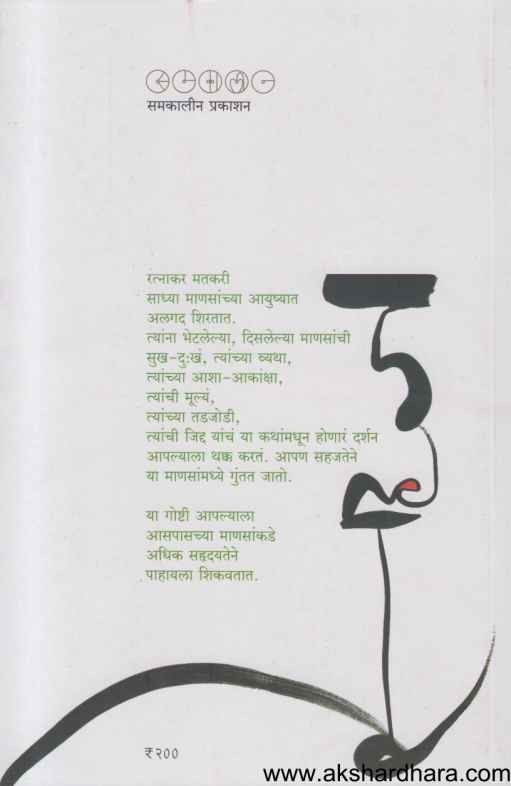 समकालीन प्रकाशन
रत्नाकर मतकरी
साध्या माणसांच्या आयुष्यात
अलगद शिरतात.
त्यांना भेटलेल्या, दिसलेल्या माणसांची
सुख-दुःखं, त्यांच्या व्यथा,
त्यांच्या आशा-आकांक्षा,
त्यांची मूल्यं,
त्यांच्या तडजोडी,
त्यांची जिद्द यांचं या कथांमधून होणारं दर्शन
आपल्याला थक्क करतं. आपण सहजतेने
या माणसांमध्ये गुंतत जातो.
या गोष्टी आपल्याला
आसपासच्या माणसांकडे
अधिक सहृदयतेने
पाहायला शिकवतात.
₹२००
www.akshardhara.com